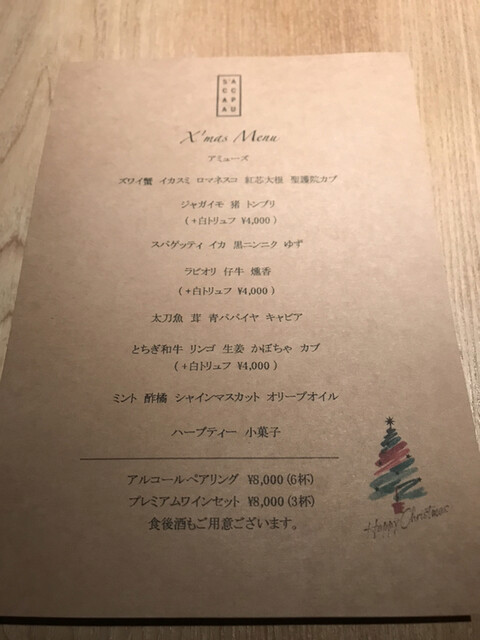 SACCAPAU
X'mas Menu
アミューズ
ズワイ蟹 イカスミ ロマネスコ 紅芯大根 聖護院カブ
ジャガイモ 猪 トンブリ
(+白トリュフ ¥4,000)
スパゲッティ イカ 黒ニンニク ゆず
ラビオリ 仔牛 燻香
(+白トリュフ ¥4,000)
太刀魚 茸 青パパイヤ キャビア
とちぎ和牛 リンゴ 生姜 かぼちゃ カブ
(+白トリュフ ¥4,000)
ミント 酢橘 シャインマスカット オリーブオイル
ハーブティー 小菓子
アルコールペアリング ¥8,000(6杯)
プレミアムワインセット ¥8,000(3杯)
食後酒もご用意ございます。
Happy Christmas